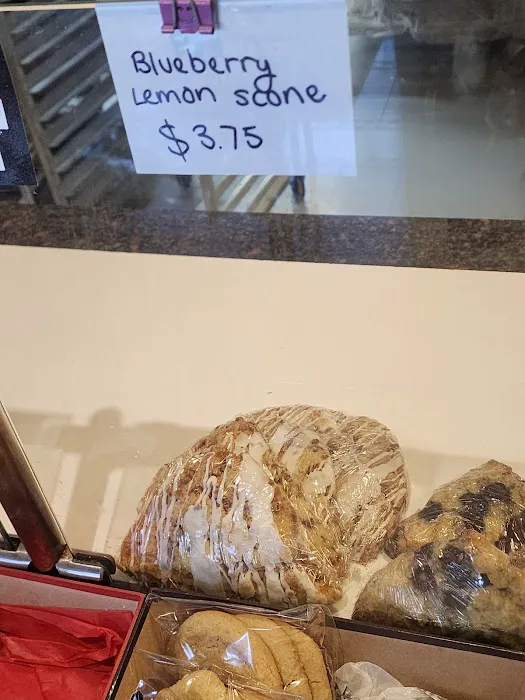 Blueberry
Lemon scone
$3.75